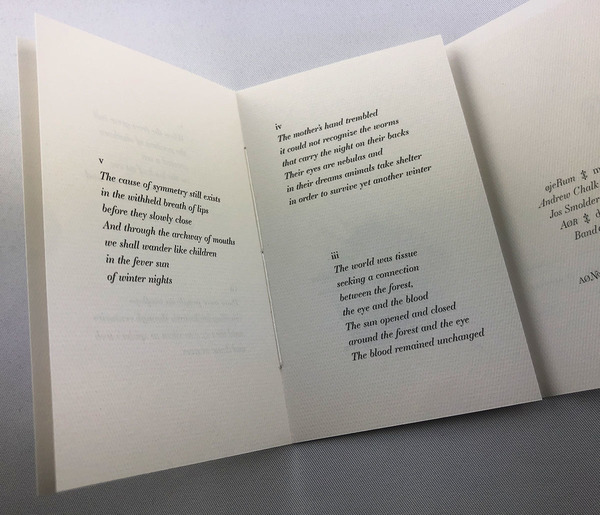 v
The cause of symmetry still exists
in the withheld breath of lips
before they slowly close
And through the archway of mouths
we shall wander like children
in the fever sun
of winter nights
iv
The mother's hand trembled
it could not recognize the worms
that carry the night on their backs
Their eyes are nebulas and
in their dreams animals take shelter
in order to survive yet another winter
iii
The world was tissue
seeking a connection
between the forest,
the eye and the blood
The sun opened and closed
around the forest and the eye
The blood remained unchanged
øjeRum ‡ m
Andrew Chalk
Jos Smolder
AØR ‡ d
Band